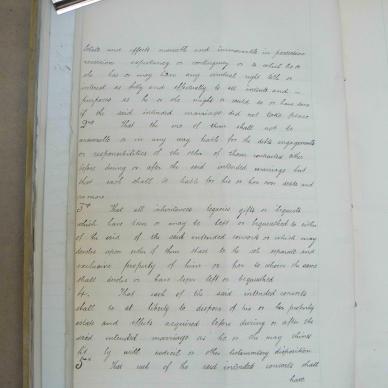 Estate and effects movable and immovable in possession
reversion expectancy or contingency or to which he or
she has or may have any eventual right title or
interest as fully and effectually to all intents and
purposes as he or she might or could do or have done
if the said intended marriage did not take place
2nd That the one of them shall not be
answerable or in any way liable for the debts engagements
or responsibilities of the other of them contracted either
before during or after the said intended marriage but
that each shall be liable for his or her own debts and
no more
3rd That all inheritances legacies gifts or bequests
which have been or may be left or bequeathed to either
of the said intended consorts or which may
devolve upon either of them shall be the sole separate and
exclusive property of him or her to whom the same
shall devolve or have been left or bequeathed
4. That each of the said intended consorts
shall be at liberty to dispose of his or her property
estate and effects acquired before during or after the
said intended marriage as he or she may think
fit by will codicil or other testamentary disposition
5th That each of the said intended consorts shall
have